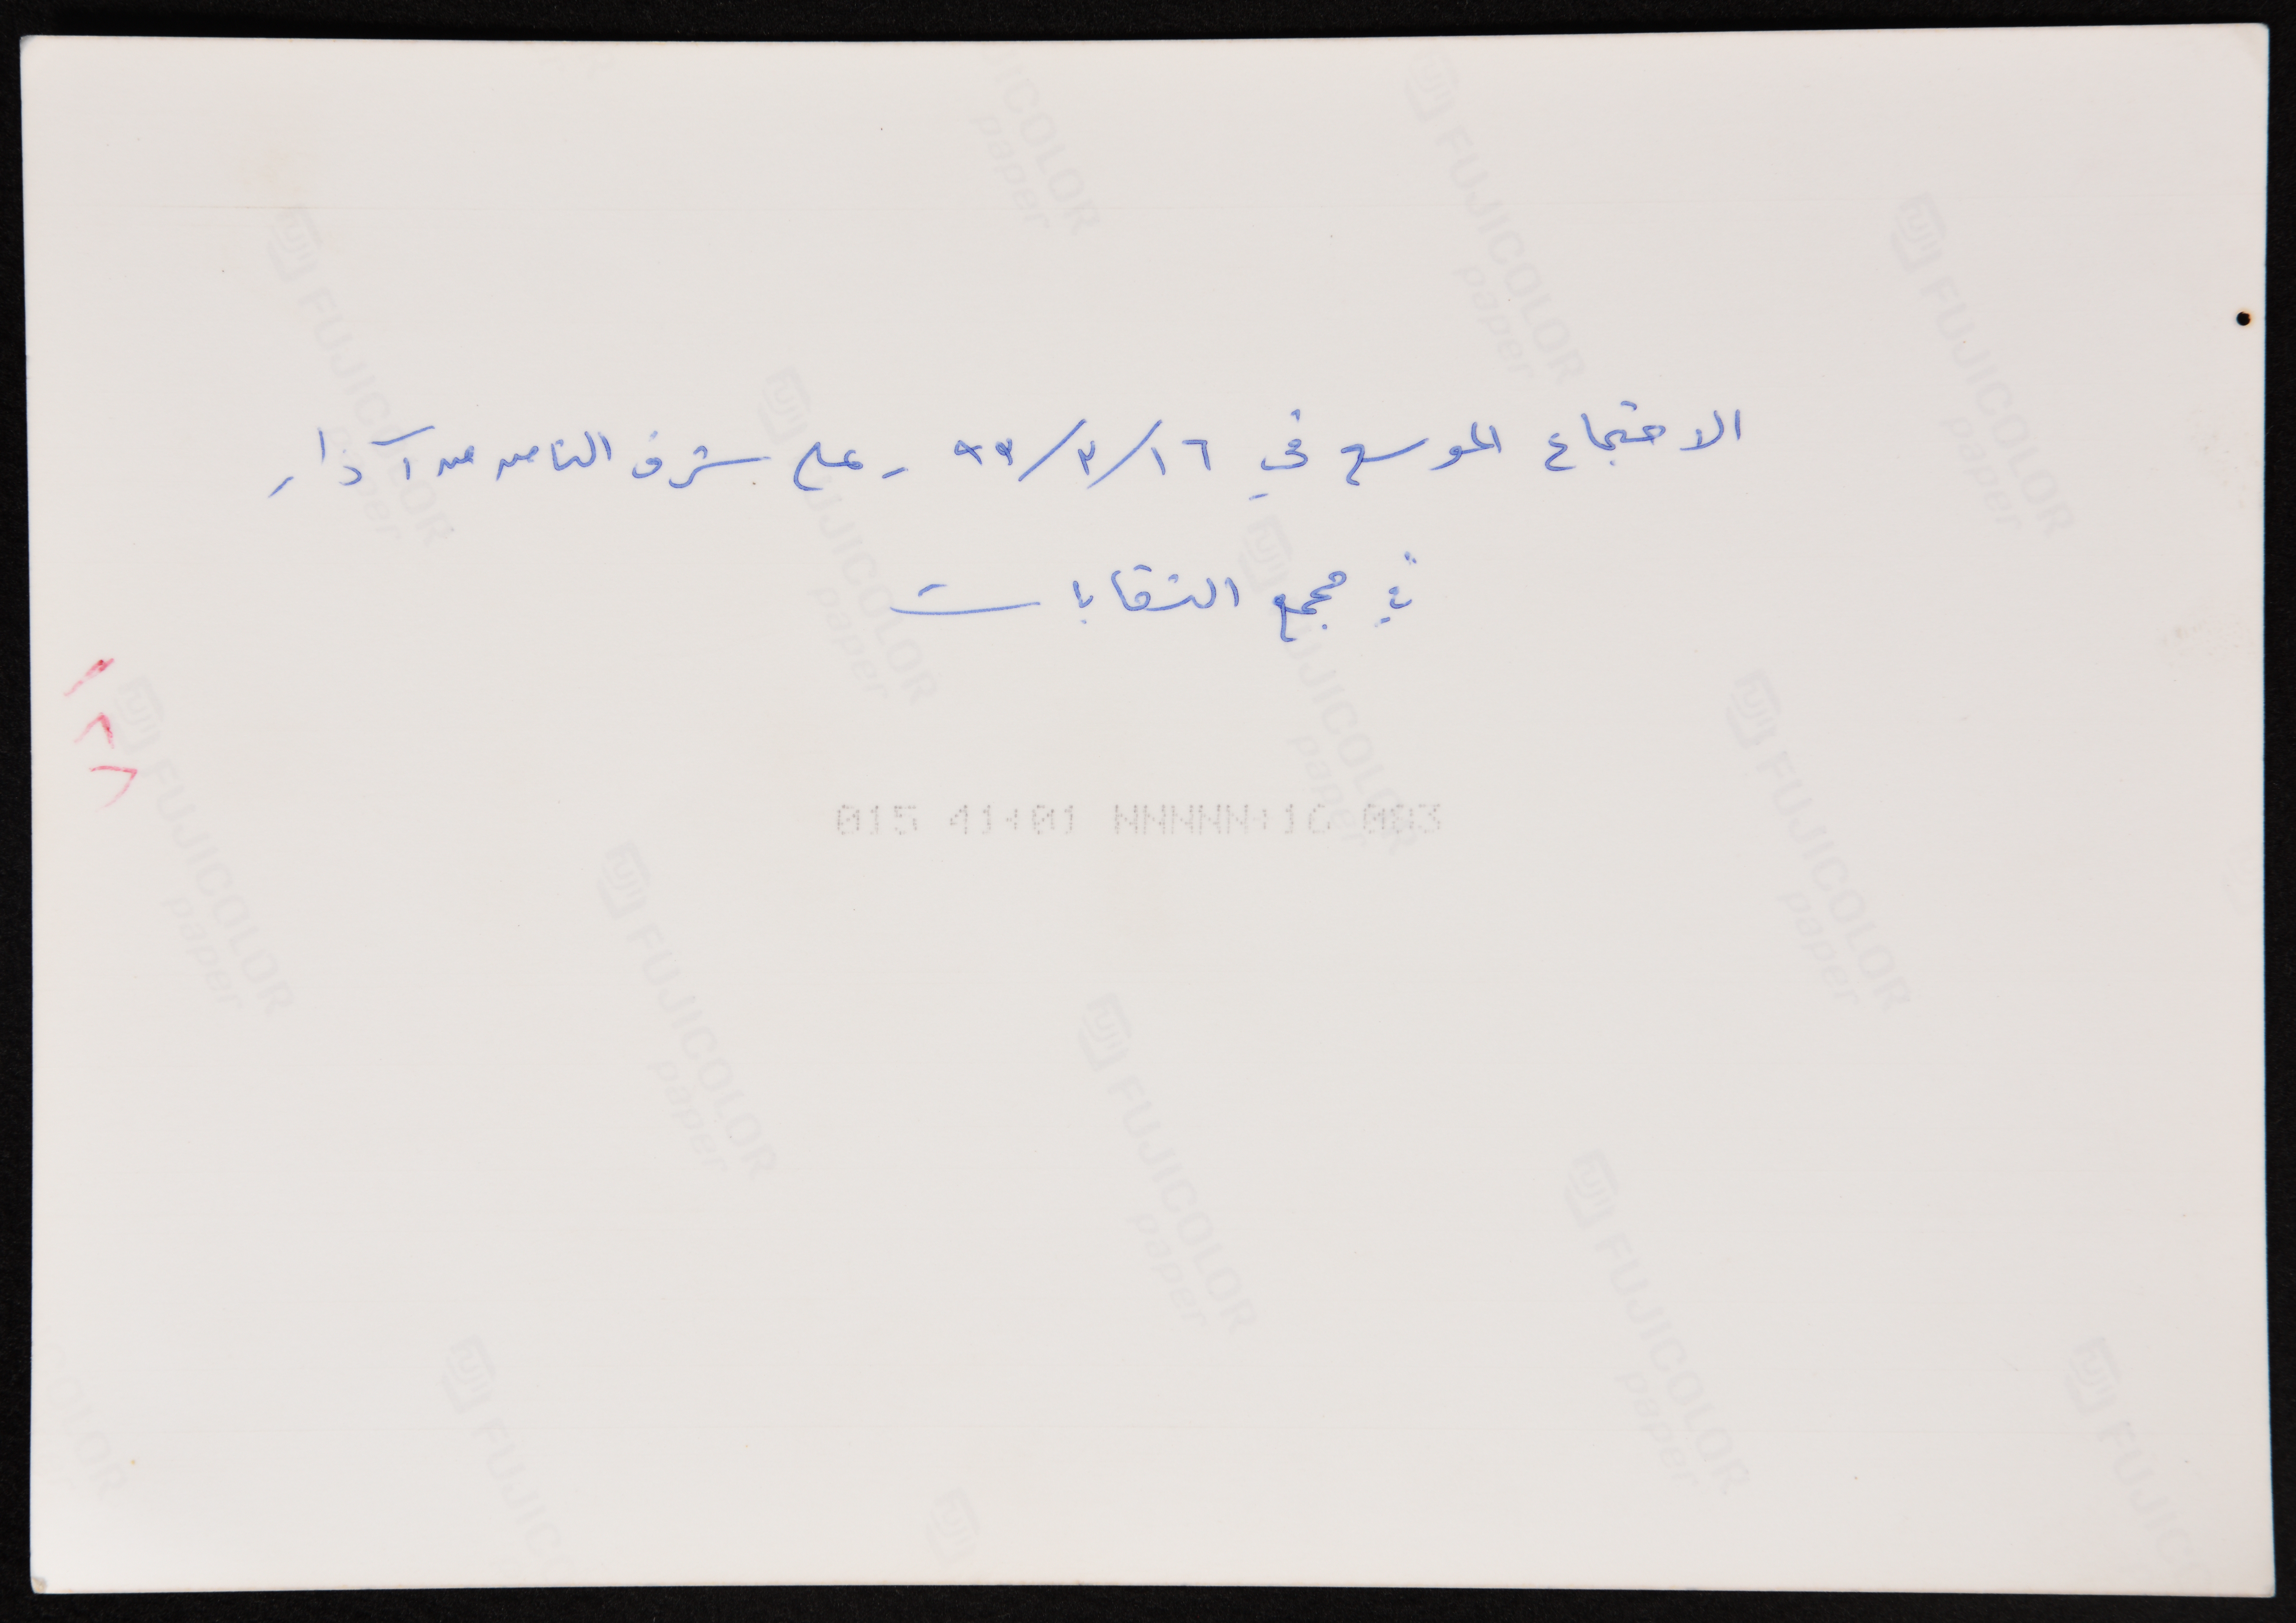 الاجتماع الموسع في ١٦/٣/٩٩ - على شرف الثامن من آذار
في مجمع النقابات
015 41+01 NNNNN+16 083
FUJI FUJICOLOR paper